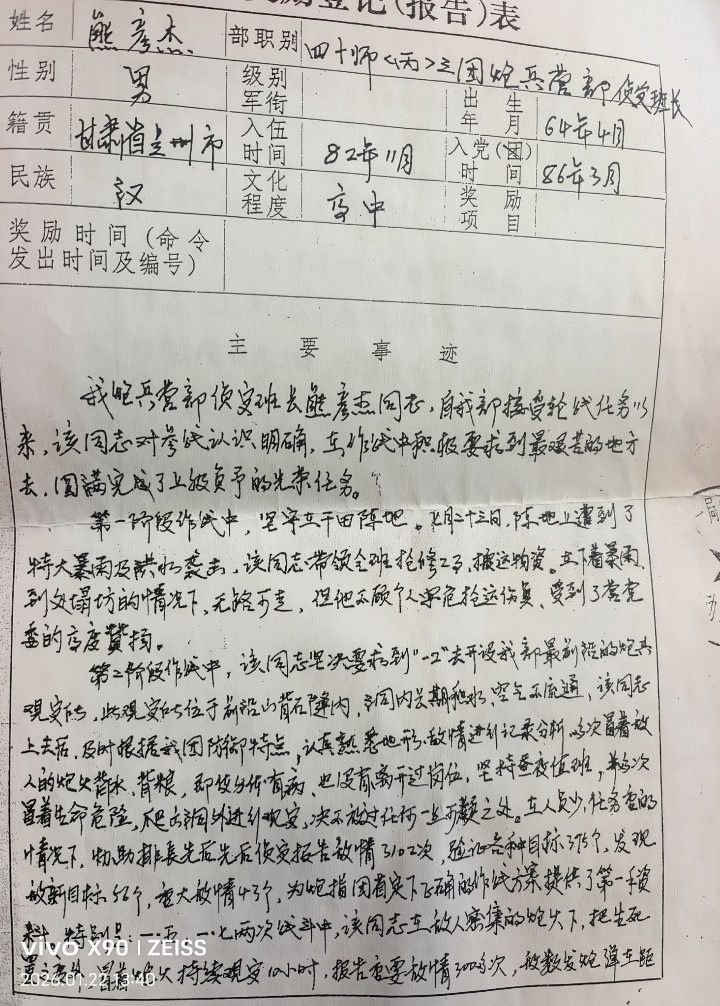 励登记(报告)表
姓名 熊彦杰 部职别 四十师(丙)三团炮兵营部侦察班长
性别 男 级别军衔 出生年月 64年4月
籍贯 甘肃省兰州市 入伍时间 82年11月 入党(团)时间 86年3月
民族 汉 文化程度 高中 奖励项目
奖励时间(命令
发出时间及编号)
主要事迹
我炮兵营部侦察班长熊彦杰同志,自我部接受轮战任务以
来,该同志对参战认识明确,在作战中积极要求到最艰苦的地方
去,圆满完成了上级负予的光荣任务。
第一阶段作战中,坚守在干田阵地。七月二十三日,阵地上遭到了
特大暴雨及洪水袭击,该同志带领全班抢修工事,搬运物资。在下着暴雨,
到处塌坊的情况下,无路可走,但他不顾个人安危抢运伤员,受到了营党
委的高度赞扬。
第二阶段作战中,该同志坚决要求到“一2”去开设我部最前沿的炮兵
观察所,此观察所位于前沿山背石缝内,洞内长期积水,空气不流通,该同志
上去后,及时根据我团防御特点,认真熟悉地形、敌情进行记录分析,多次冒着敌
人的炮火背水、背粮,即使身体有病,也没有离开过岗位,坚持昼夜值班,并多次
冒着生命危险,爬出洞外进行观察,决不放过任何一点可疑之处。在人员少,任务重的
情况下,协助排长先后先后侦察报告敌情3102次,验证各种目标375个,发现
敌新目标56个,重大敌情43个,为炮指团首定下正确的作战方案提供了第一手资
料。特别是一·五、一·七两次战斗中,该同志在敌人密集的炮火下,把生死
置之度外,冒着炮火持续观察10小时,报告重要敌情300多次,被数发炮弹在距
vivo X90 | ZEISS
2026.01.22 11:40